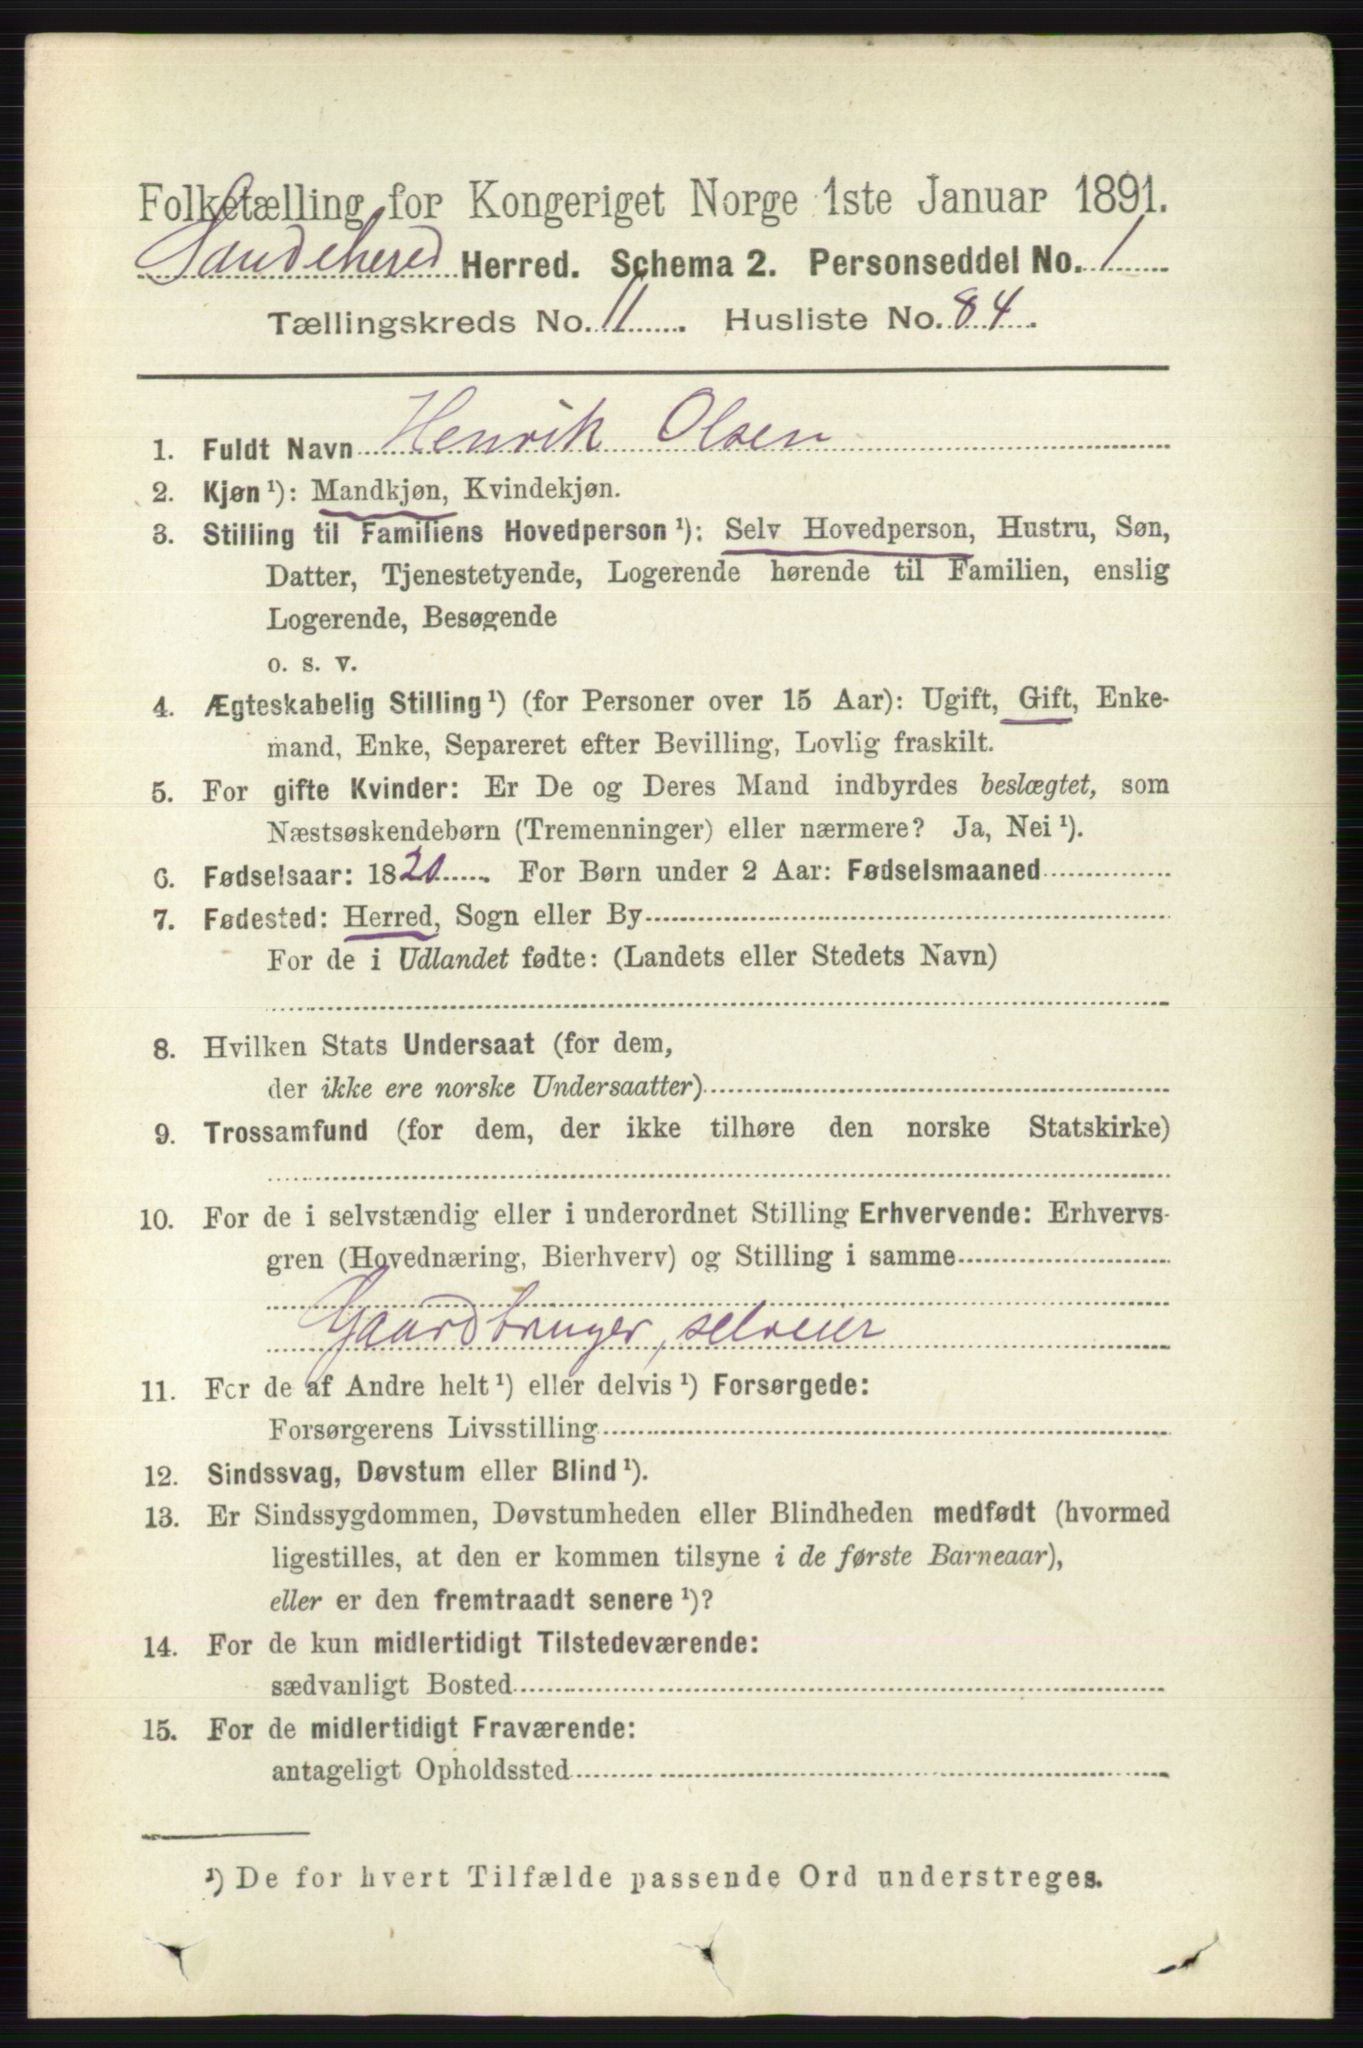 Folketælling for Kongeriget Norge 1ste Januar 1891.
Sandehered Herred. Schema 2. Personseddel No. 1
Tællingskreds No. 11. Husliste No. 84.
1. Fuldt Navn Henrik Olsen
2. Kjøn ¹): Mandkjøn, Kvindekjøn.
3. Stilling til Familiens Hovedperson ¹): Selv Hovedperson, Hustru, Søn,
Datter, Tjenestetyende, Logerende hørende til Familien, enslig
Logerende, Besøgende
o. s. v.
4. Ægteskabelig Stilling ¹) (for Personer over 15 Aar): Ugift, Gift, Enke-
mand, Enke, Separeret efter Bevilling, Lovlig fraskilt.
5. For gifte Kvinder: Er De og Deres Mand indbyrdes beslægtet, som
Næstsøskendebørn (Tremenninger) eller nærmere? Ja, Nei ¹).
6. Fødselsaar: 1820. For Børn under 2 Aar: Fødselsmaaned
7. Fødested: Herred, Sogn eller By
For de i Udlandet fødte: (Landets eller Stedets Navn)
8. Hvilken Stats Undersaat (for dem,
der ikke ere norske Undersaatter)
9. Trossamfund (for dem, der ikke tilhøre den norske Statskirke)
10. For de i selvstændig eller i underordnet Stilling Erhvervende: Erhvervs-
gren (Hovednæring, Bierhverv) og Stilling i samme
Gaardbruger, selveier
11. For de af Andre helt ¹) eller delvis ¹) Forsørgede:
Forsørgerens Livsstilling
12. Sindssvag, Døvstum eller Blind ¹).
13. Er Sindssygdommen, Døvstumheden eller Blindheden medfødt (hvormed
ligestilles, at den er kommen tilsyne i de første Barneaar),
eller er den fremtraadt senere ¹)?
14. For de kun midlertidigt Tilstedeværende:
sædvanligt Bosted
15. For de midlertidigt Fraværende:
antageligt Opholdssted
¹) De for hvert Tilfælde passende Ord understreges.